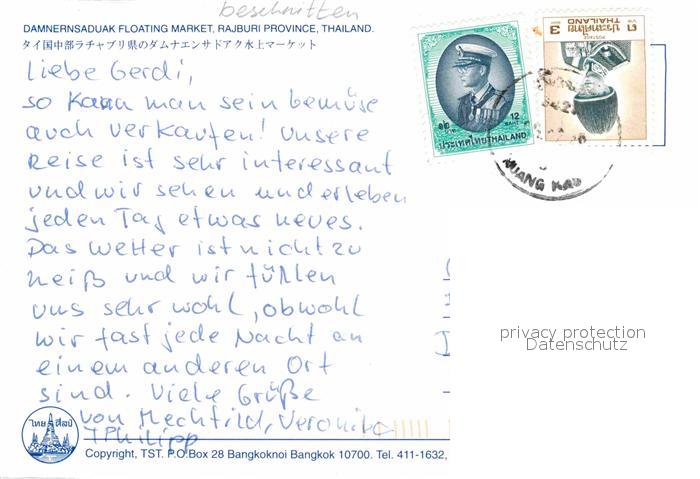 beschnitten
DAMNERNSADUAK FLOATING MARKET, RAJBURI PROVINCE, THAILAND.
タイ国中部ラチャブリ県のダムナエンサドアク水上マーケット
Liebe Gerdi,
so kann man sein Gemüse
auch verkaufen! Unsere
Reise ist sehr interessant
und wir sehen und erleben
jeden Tag etwas neues.
Das Wetter ist nicht zu
heiß und wir fühlen
uns sehr wohl, obwohl
wir fast jede Nacht an
einem anderen Ort
sind. Viele Grüße
von Mechthild, Veronika
+ Philipp
ไทย ศิลป์
Copyright, TST. P.O.Box 28 Bangkoknoi Bangkok 10700. Tel. 411-1632,
๑๒ 12
บาท BAHT
ประเทศไทย THAILAND
3 ๓
THAILAND
ประเทศไทย
POSTAGE
MUANG
privacy protection
Datenschutz